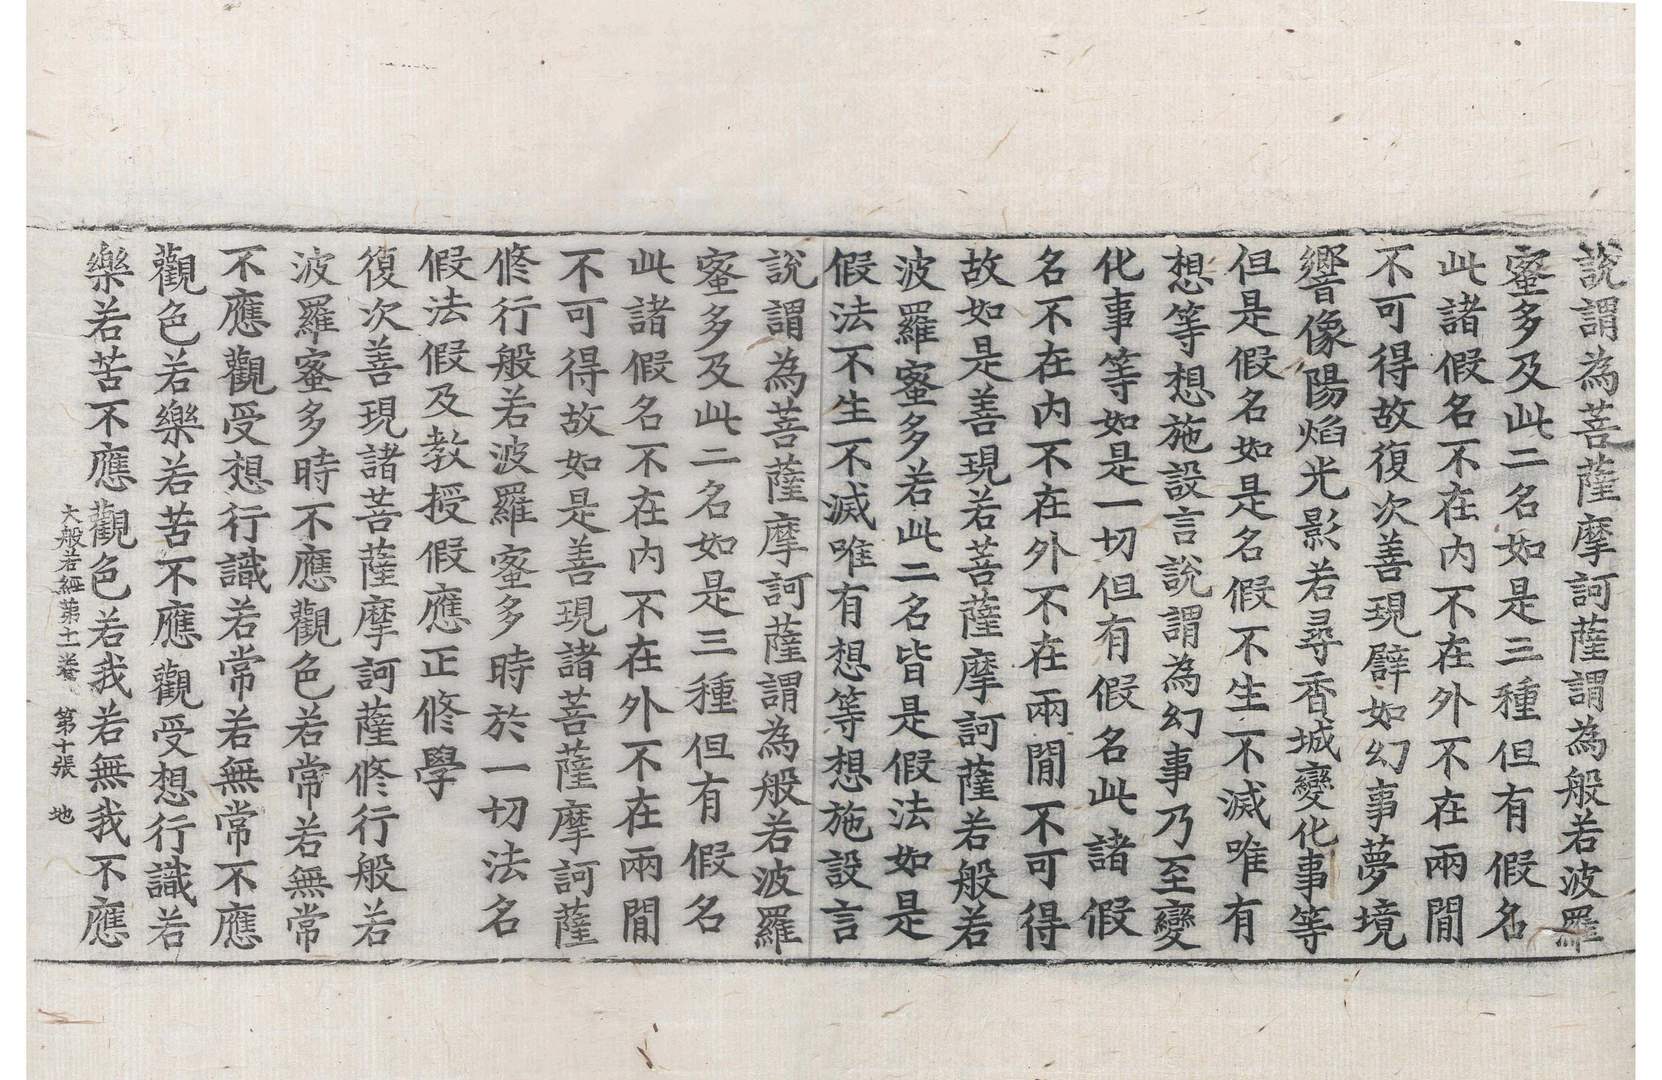 說謂為菩薩摩訶薩謂為般若波羅
蜜多及此二名如是三種但有假名
此諸假名不在內不在外不在兩間
不可得故復次善現譬如幻事夢境
響像陽焰光影若尋香城變化事等
但是假名如是名假不生不滅唯有
想等想施設言說謂為幻事乃至變
化事等如是一切但有假名此諸假
名不在內不在外不在兩間不可得
故如是善現若菩薩摩訶薩若般若
波羅蜜多若此二名皆是假法如是
假法不生不滅唯有想等想施設言
說謂為菩薩摩訶薩謂為般若波羅
蜜多及此二名如是三種但有假名
此諸假名不在內不在外不在兩間
不可得故如是善現諸菩薩摩訶薩
修行般若波羅蜜多時於一切法名
假法假及教授假應正修學
復次善現諸菩薩摩訶薩修行般若
波羅蜜多時不應觀色若常若無常
不應觀受想行識若常若無常不應
觀色若樂若苦不應觀受想行識若
樂若苦不應觀色若我若無我不應
大般若經第十一卷 第十張 地